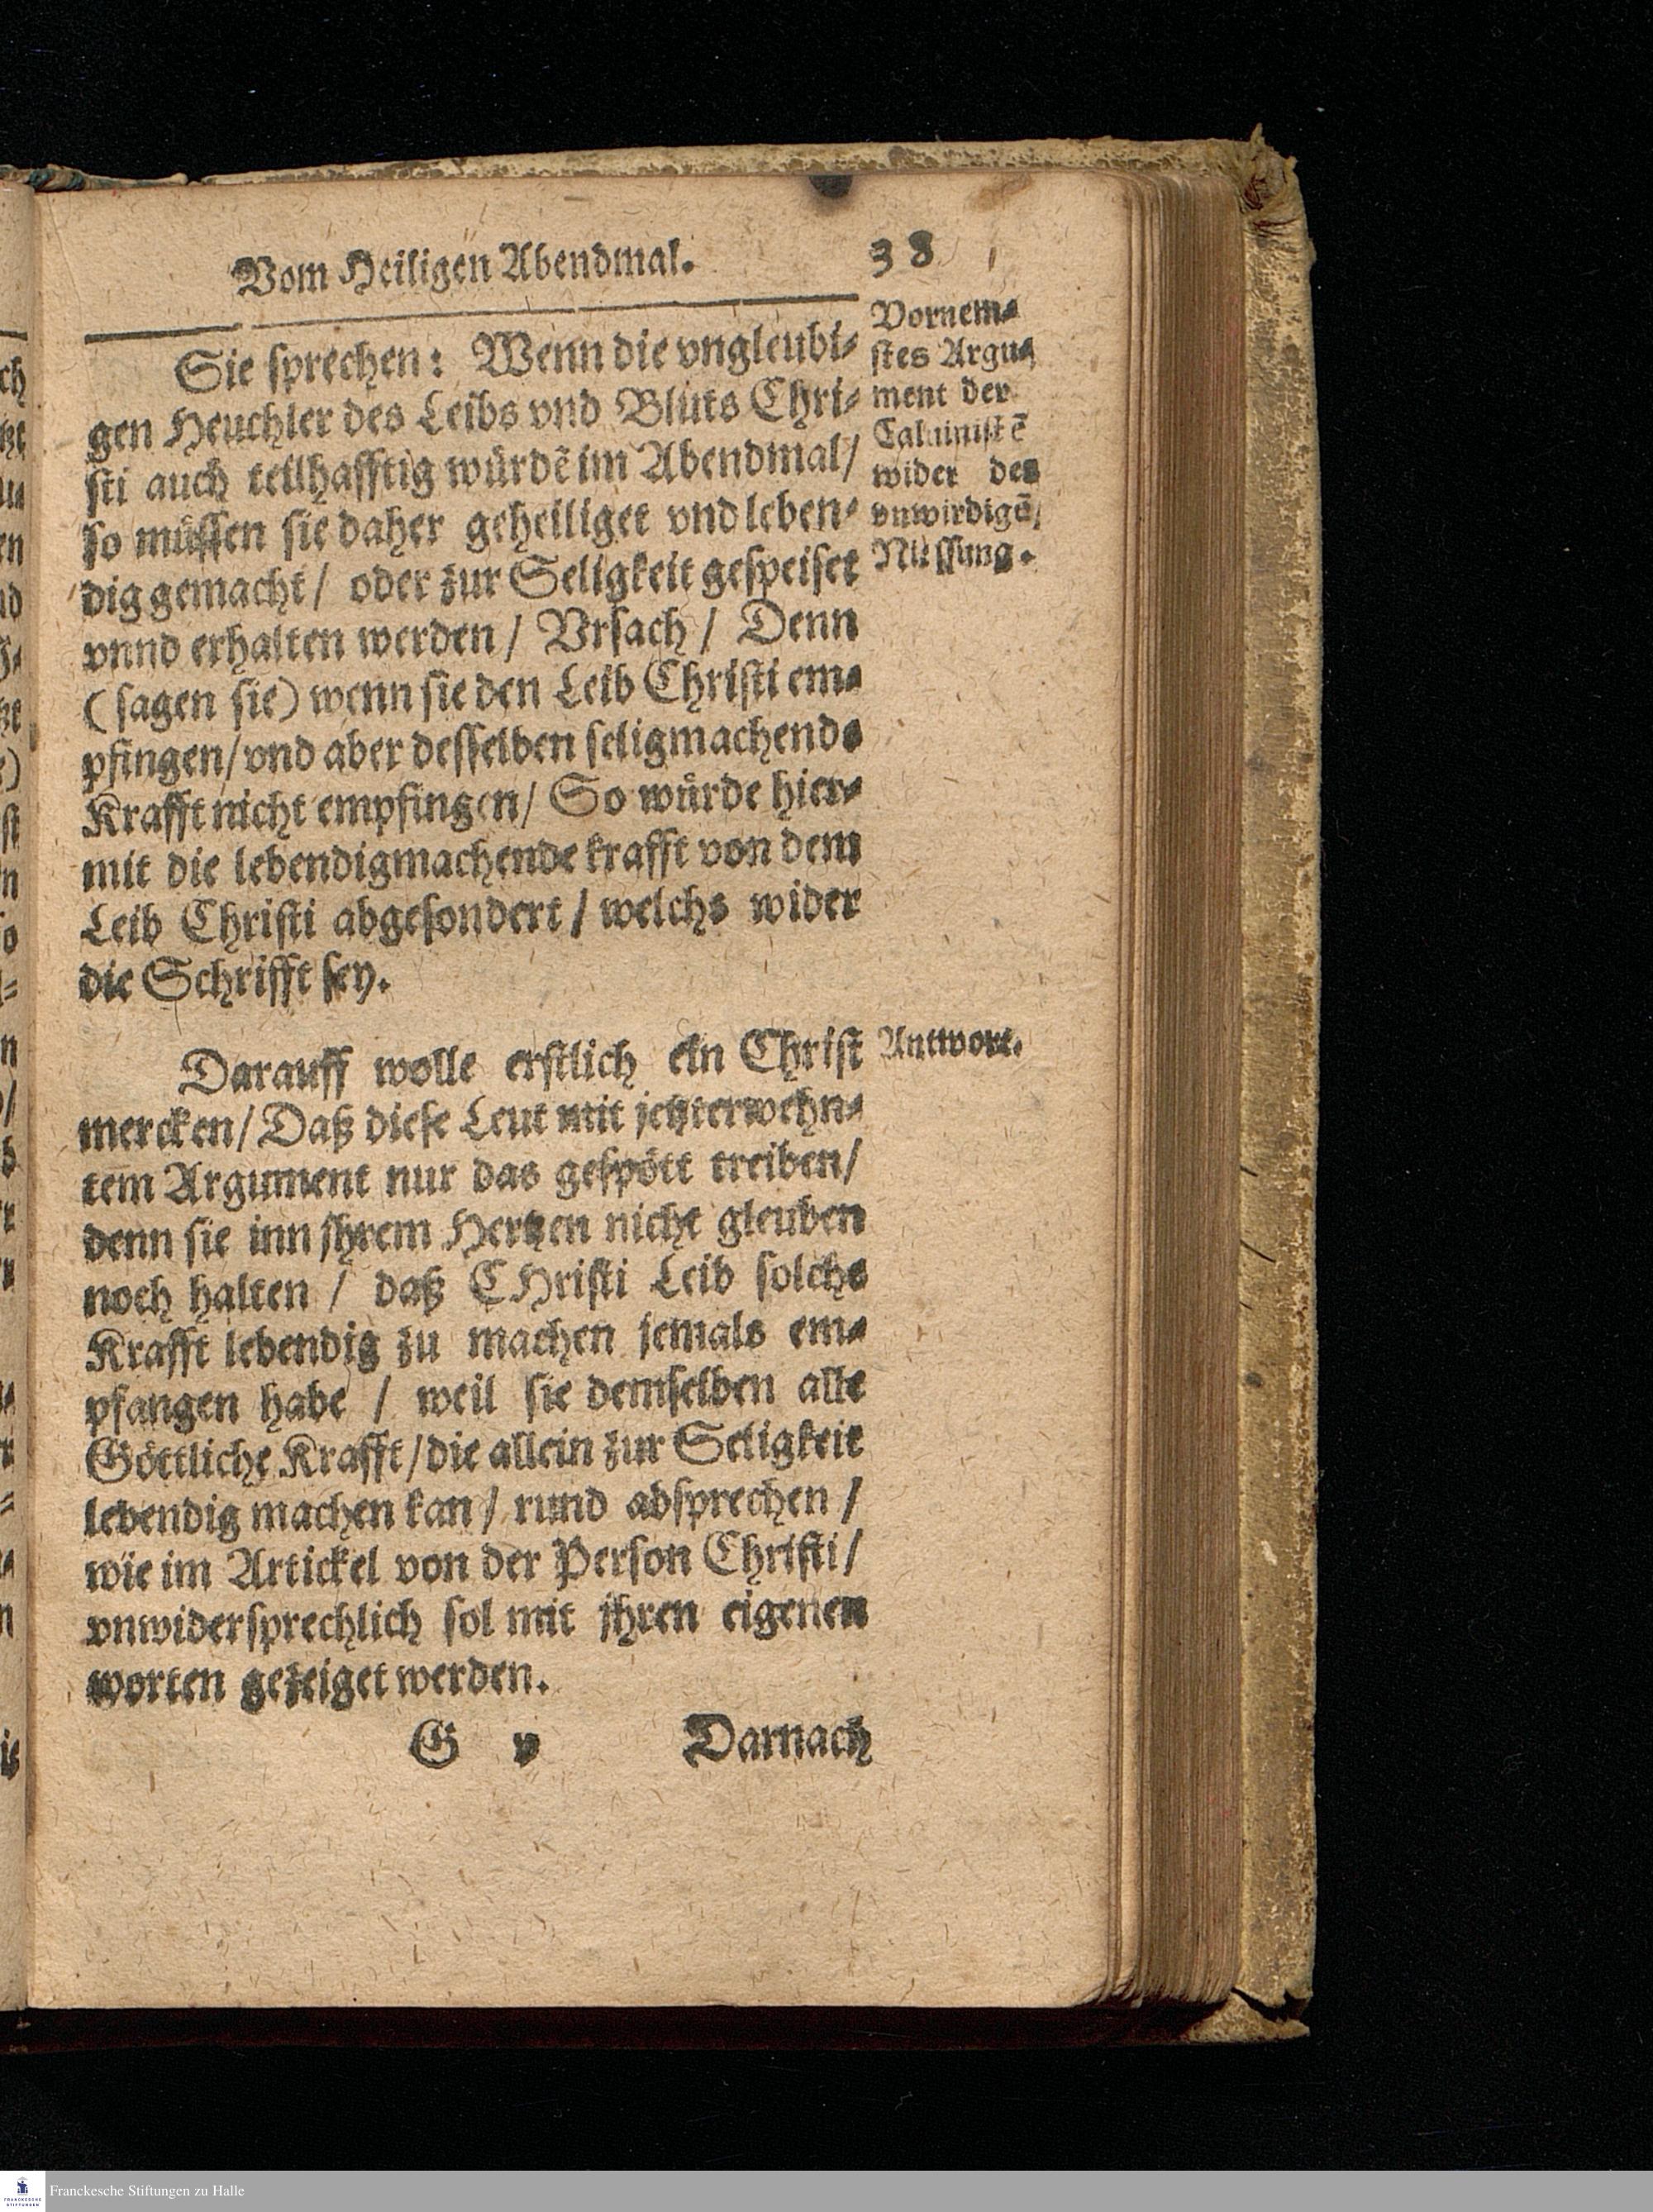 Vom Heiligen Abendmal. 38
Sie sprechen: Wenn die vngleubi-
gen Heuchler des Leibs vnd Bluts Chri-
sti auch teilhafftig würdē im Abendmal/
so müssen sie daher geheiliget vnd leben-
dig gemacht/ oder zur Seligkeit gespeiset
vnnd erhalten werden/ Vrsach/ Denn
(sagen sie) wenn sie den Leib Christi em-
pfingen/ vnd aber desselben seligmachende
Krafft nicht empfingen/ So würde hier-
mit die lebendigmachende krafft von dem
Leib Christi abgesondert/ welchs wider
die Schrifft sey.
Vornem-
stes Argu-
ment der
Caluinistē
wider den
vnwirdigē/
Nüssung.
Darauff wolle erstlich ein Christ
mercken/ Daß diese Leut mit jetzterwehn-
tem Argument nur das gespött treiben/
denn sie inn jhrem Hertzen nicht gleuben
noch halten/ daß CHristi Leib solche
Krafft lebendig zu machen jemals em-
pfangen habe/ weil sie demselben alle
Göttliche Krafft/ die allein zur Seligkeit
lebendig machen kan/ rund absprechen/
wie im Artickel von der Person Christi/
vnwidersprechlich sol mit jhren eigenen
worten gezeiget werden.
Antwort.
G v Darnach
Franckesche Stiftungen zu Halle